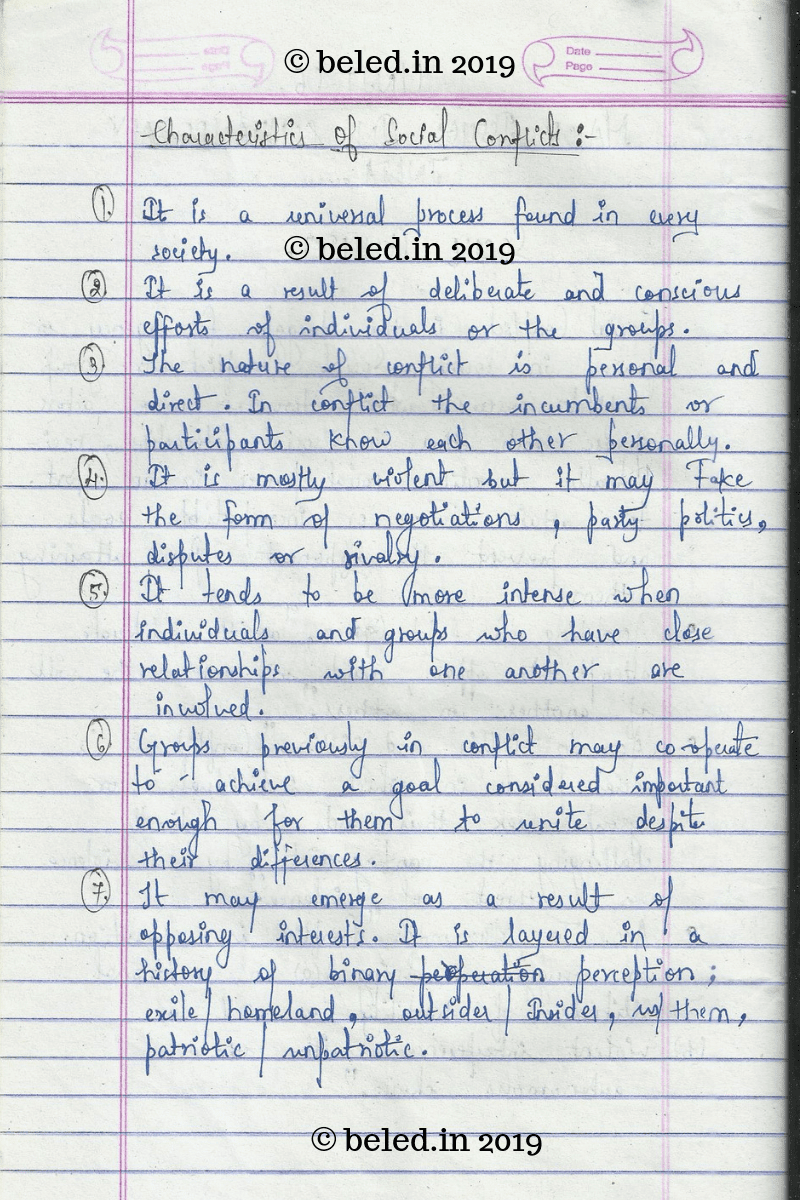 © beled.in 2019
Date
Page
Characteristics of Social Conflicts :-
1. It is a universal process found in every
society.
© beled.in 2019
2. It is a result of deliberate and conscious
efforts of individuals or the groups.
3. The nature of conflict is personal and
direct. In conflict the incumbents or
participants know each other personally.
4. It is mostly violent but it may Take
the form of negotiations, party politics,
disputes or rivalry.
5. It tends to be more intense when
individuals and groups who have close
relationships with one another are
involved.
6. Groups previously in conflict may co-operate
to achieve a goal considered important
enough for them to unite despite
their differences.
7. It may emerge as a result of
opposing interests. It is layered in a
history of binary perception;
exile/homeland, outsider/Insider, us/them,
patriotic/unpatriotic.
© beled.in 2019